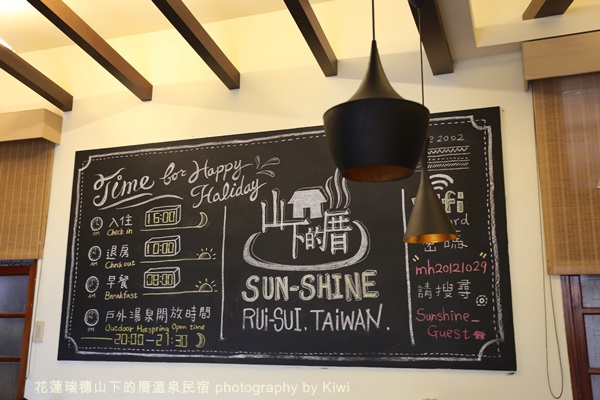 Time for Happy
Haliday
入住 16:00
Check in
AM 退房 10:00
Check out
AM 早餐 08:00
Breakfast
AM 戶外湯泉開放時間
Outdoor Hotspring Open time
20:00-21:30
山下的厝
SUN-SHINE
RUI-SUI. TAIWAN.
2002
wifi
密碼
mh20121029
請搜尋
Sunshine_
Guest
花蓮瑞穗山下的厝溫泉民宿 photography by Kiwi